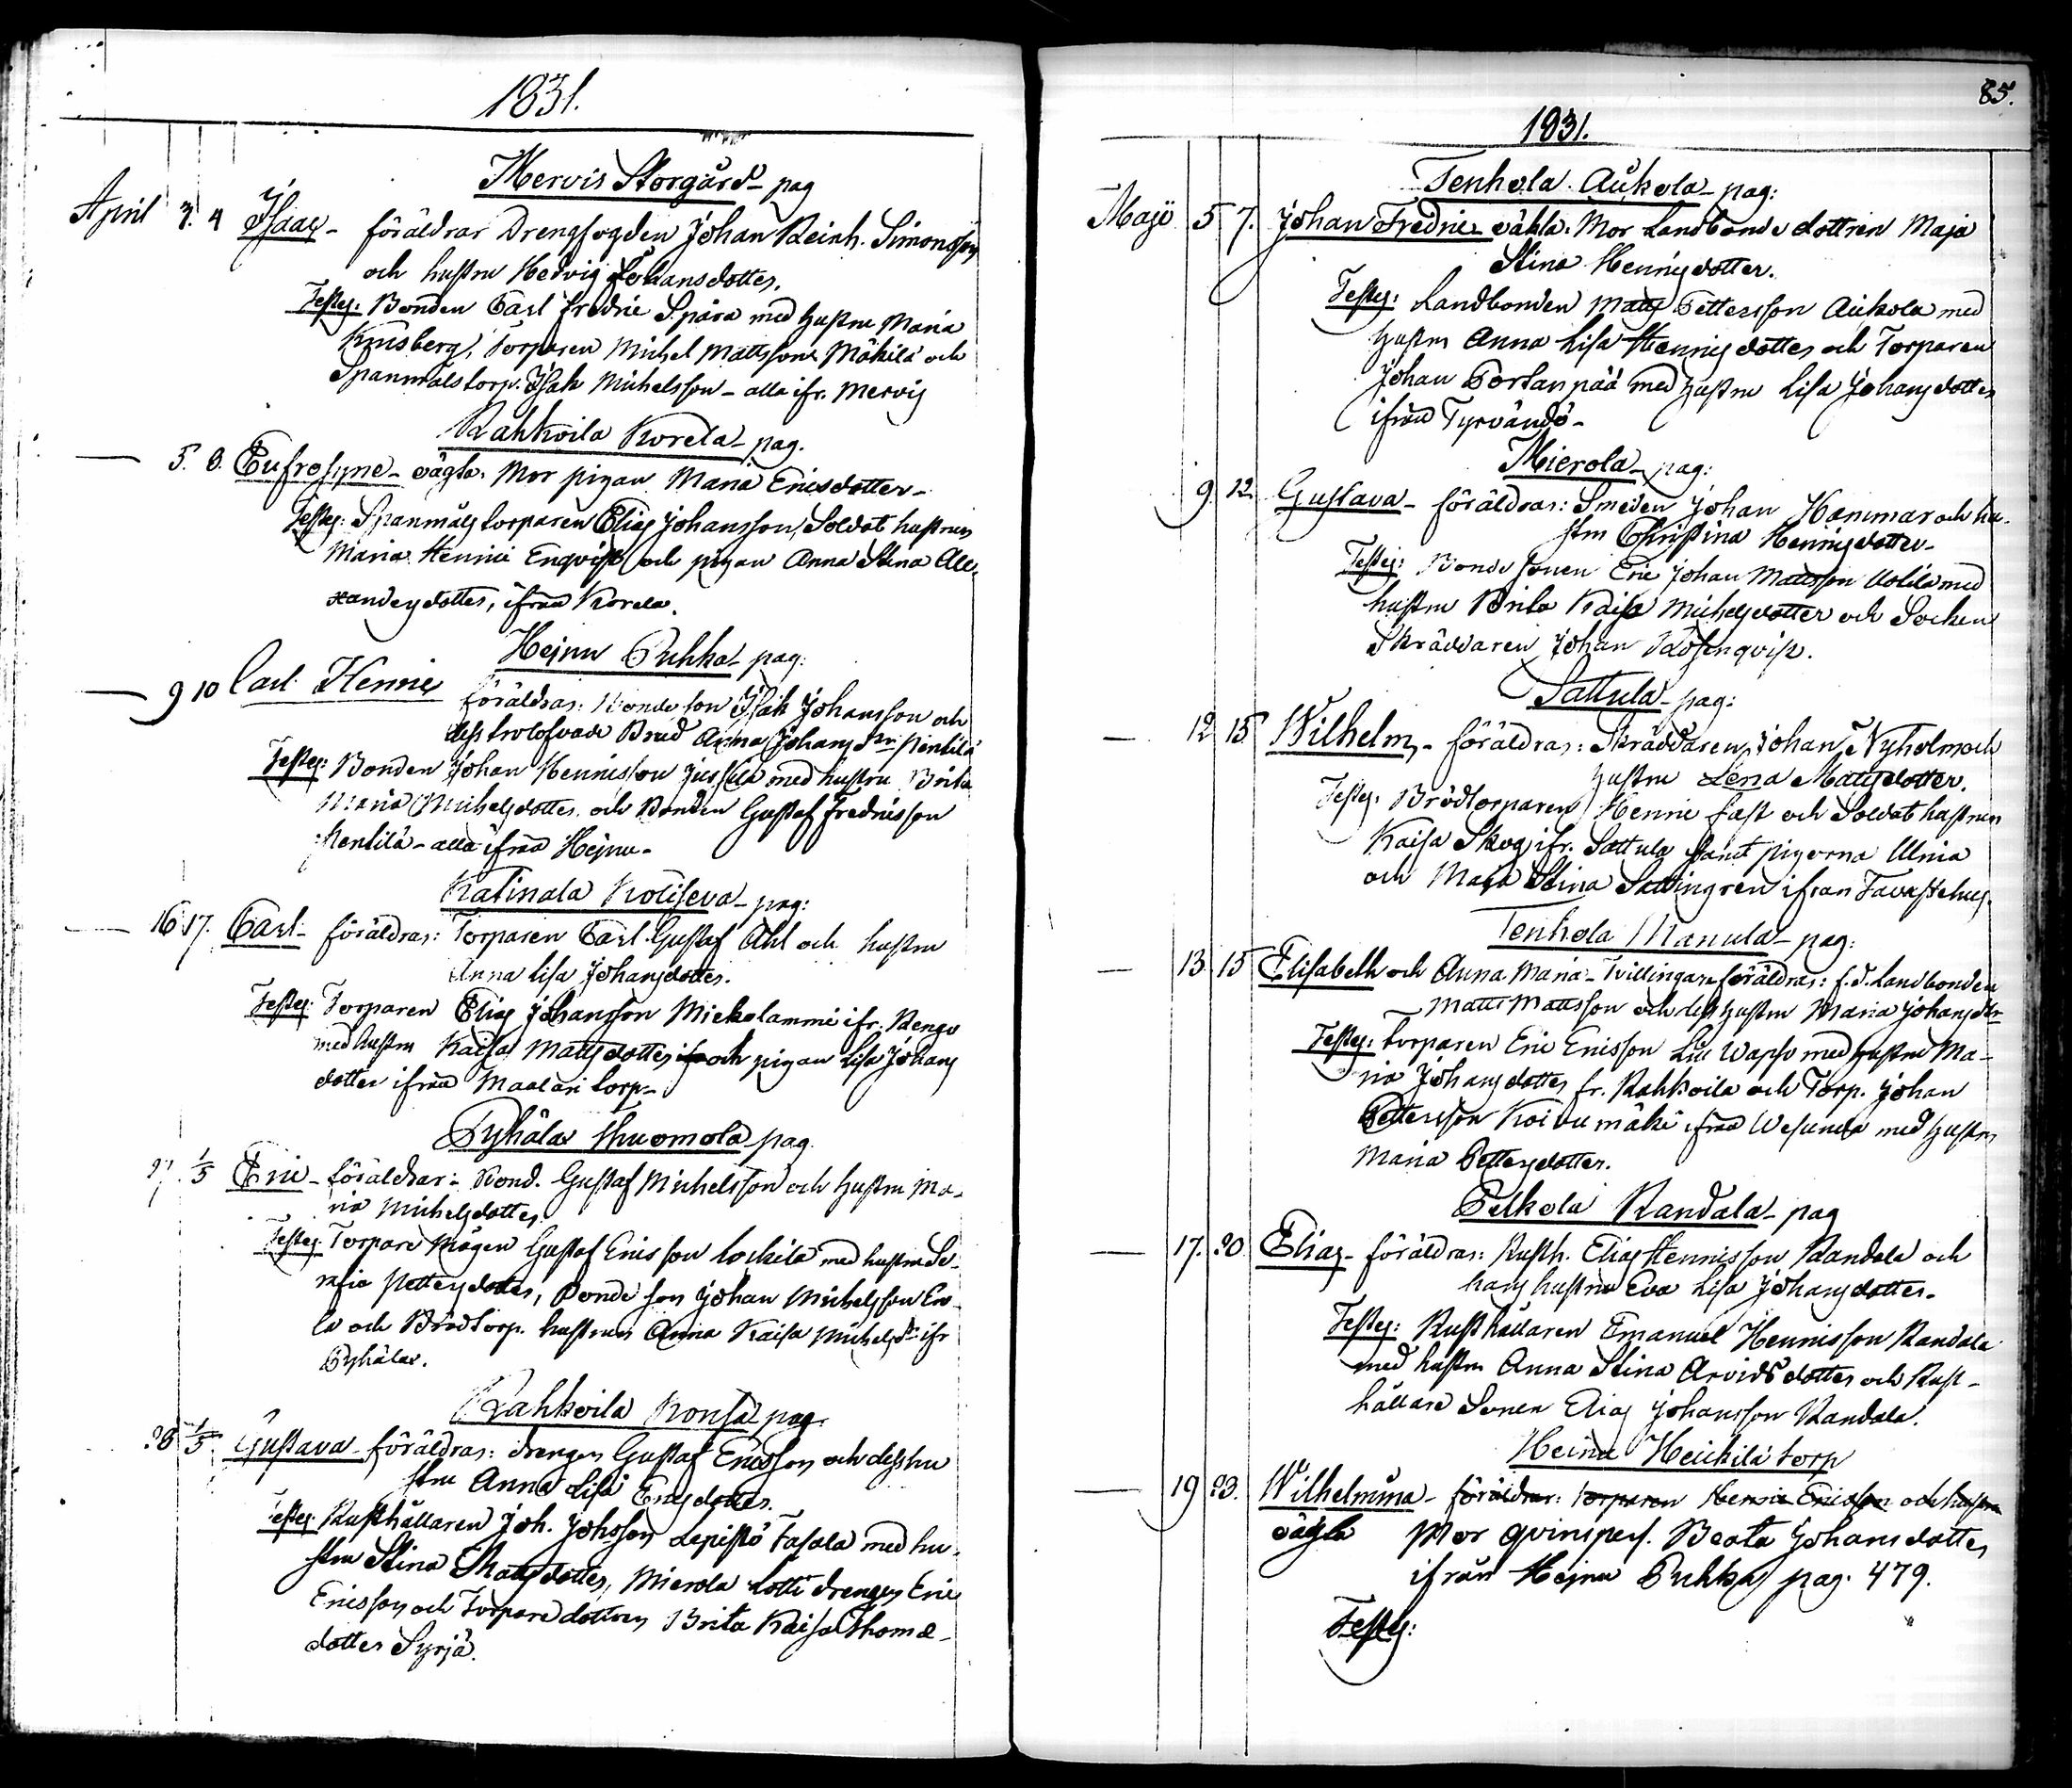 1831.
Mervis Storgård - pag
April 3. 4 Isaac - föräldrar Drengfogden Johan Reinh. Simonsson
och hustru Hedvig Johansdotter.
Testes: Bonden Carl Fredric Spåra med hustru Maria
Krusberg, Torparen Michel Mattsson Mäkilä och
Spanmålstorp. Isak Michelsson - alla ifr. Mervis
Rahkoila Korela - pag.
5. 8. Eufrosyne - oägta. Mor pigan Maria Ericsdotter -
Testes: Spanmålstorparen Elias Johansson, Soldat hustrun
Maria Henric Enqvist och pigan Anna Stina Ale-
xandersdotter, ifrån Korela.
Hejnu Puhka - pag:
9 10 Carl Henric föräldrar: Bondeson Isak Johansson och
dess trolofvade Brud Anna Johansdr Pentilä
Testes: Bonden Johan Henricsson Jussila med hustru Brita
Maria Michelsdotter och Bonden Gustaf Fredricsson
Pentilä - alla ifrån Hejnu -
Katinala Kotiseva - pag:
16 17. Carl - föräldrar: Torparen Carl Gustaf Ahl och hustru
Anna Lisa Johansdotter.
Testes: Torparen Elias Johansson Mickolammi ifr. Rengo
med hustru Kaisa Mattsdotter och pigan Lisa Johans
dotter ifrån Maalari torp -
Pyhälax Thuomola pag.
1/5 Eric - föräldrar: Bond. Gustaf Michelsson och hustru Ma-
ria Michelsdotter.
Testes: Torpare mågen Gustaf Ericsson Lockila med hustru Se-
rafia Pettersdotter, Bonde son Johan Michelsson Ero-
la och Brödtorp. hustrun Anna Kaisa Michelsdr ifr
Pyhälax.
Rahkoila Konsa pag.
28 1/5. Gustava - föräldrar: drengen Gustaf Ericsson och dess hu
stru Anna Lisa Ericsdotter.
Testes: Rusthållaren Joh. Johsson Lepistö Fasala med hu-
stru Stina Mattsdotter, Mierola Lotti drengen Eric
Ericsson och Torpare dottren Brita Kaisa Thomæ-
dotter Syrjä.
85.
1831.
Tenhola Aukola - pag:
Maji 5 7. Johan Fredric oäkta. Mor Landbonde dottren Maja
Stina Henricsdotter.
Testes: Landbonden Matts Pettersson Aukola med
hustru Anna Lisa Henricsdotter och Torparen
Johan Portanpää med hustru Lisa Johansdotter
ifrån Tyrvändö -
Mierola - pag:
9. 12 Gustava - föräldrar: Smeden Johan Hammar och hu-
stru Christina Henricsdotter -
Testes: Bonde sonen Eric Johan Mattsson Uotila med
hustru Brita Kaisa Michelsdotter och Socken
Skräddaren Johan Rosenqvist.
Sattula - pag:
12 15 Wilhelm, - föräldrar: Skräddaren Johan Nyholm och
hustru Lena Mattsdotter.
Testes: Brödtorparen Henric Fast och Soldat hustrun
Kaisa Skog ifr. Sattula samt pigorna Ulrica
och Maja Stina Sattingren ifrån Tavastehus.
Tenhola Manula - pag:
13 15 Elisabeth och Anna Maria - Tvillingar föräldrar: f.d. Landbonden
Matts Mattsson och dess hustru Maria Johansdtr
Testes: Torparen Eric Ericsson Lill Wapso med hustru Ma-
ria Johansdotter fr. Rahkoila och Torp. Johan
Pettersson Koivumäki ifrån Wesunda med hustru
Maria Pettersdotter.
Pelkola Randala - pag
17. 20. Elias - föräldrar: Rusth. Elias Henricsson Randala och
hans hustru Eva Lisa Johansdotter.
Testes: Rusthållaren Emanuel Henricsson Randala
med hustru Anna Stina Arvidsdotter och Rust-
hållare Sonen Elias Johansson Randala.
Heinu Heickilä torp
19 23. Wilhelmina - föräldrar: Torparen Henric Ericsson och hustru
oägta Mor qvinspers. Beata Johansdotter
ifrån Hejnu Puhka pag. 479.
Testes: